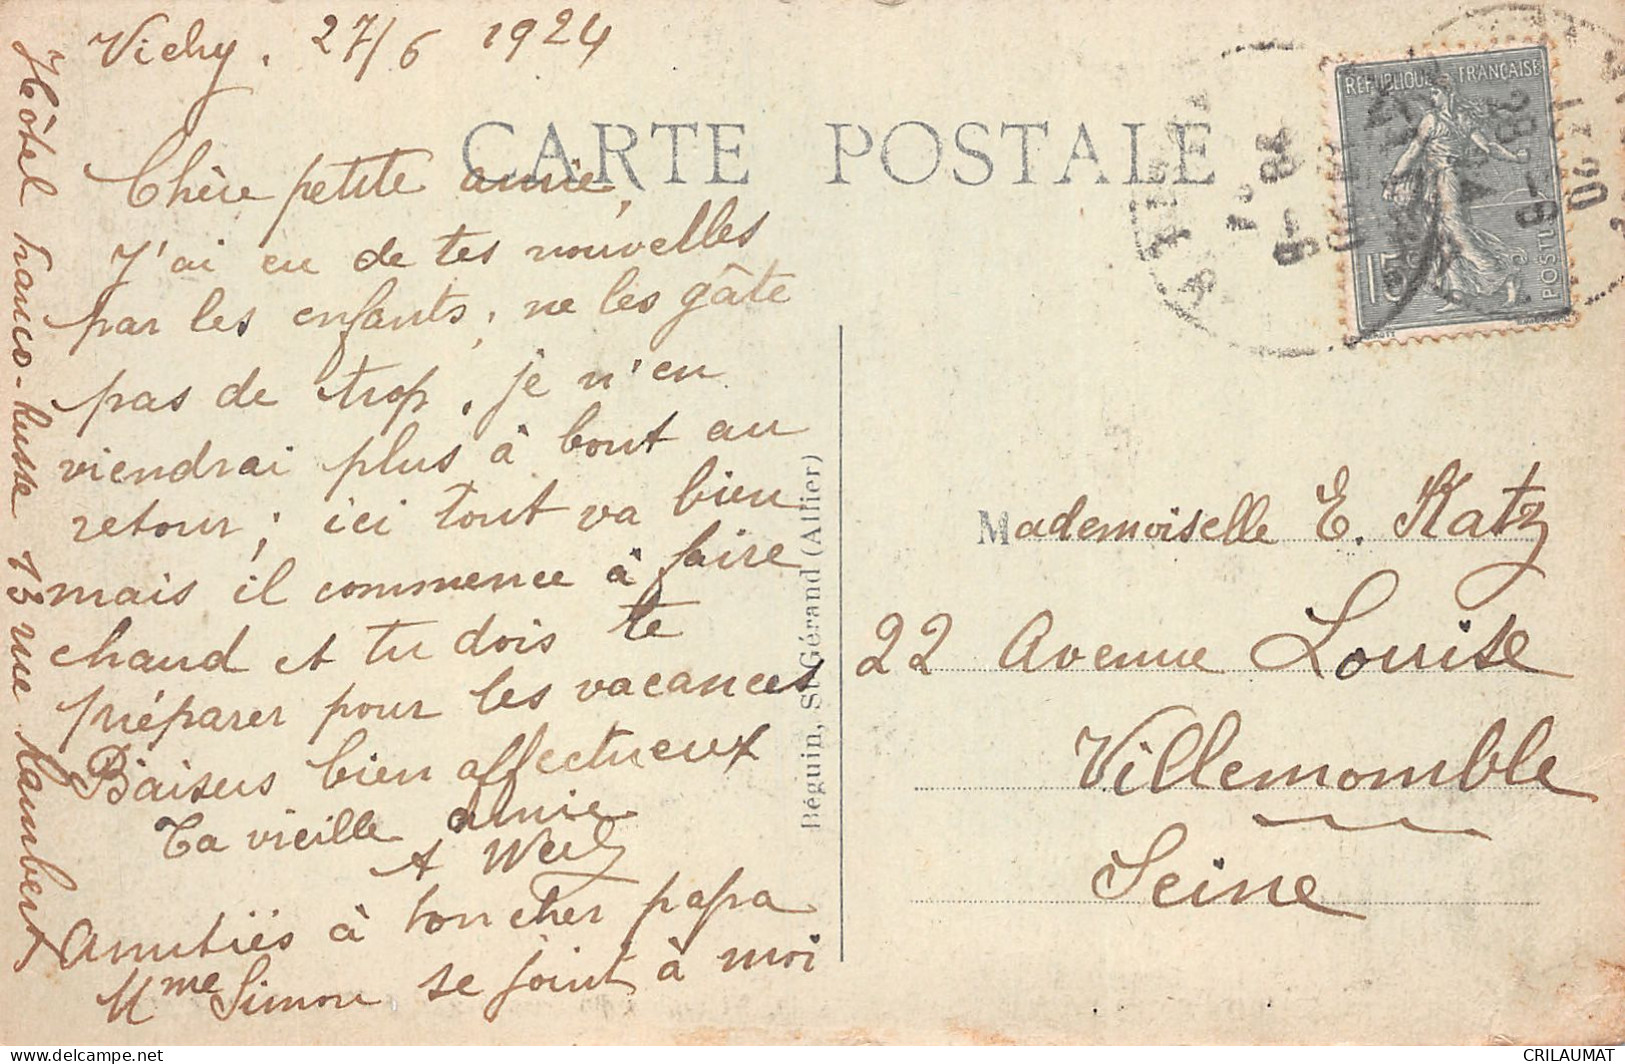 Vichy. 27/6 1924
CARTE POSTALE
Chère petite amie,
J'ai eu de tes nouvelles
par les enfants, ne les gâte
pas de trop, je n'en
viendrai plus à bout au
retour; ici tout va bien
mais il commence à faire
chaud et tu dois te
préparer pour les vacances
Baisers bien affectueux
Ta vieille amie
A Weil
Amitiés à ton cher papa
Mme Simon se joint à moi
Hôtel franco-russe 13 rue Lambert
Béguin, St-Gérand (Allier)
REPUBLIQUE FRANÇAISE
15c
POSTES
Mademoiselle E. Katz
22 Avenue Louise
Villemomble
Seine
delcampe.net
CRILAUMAT